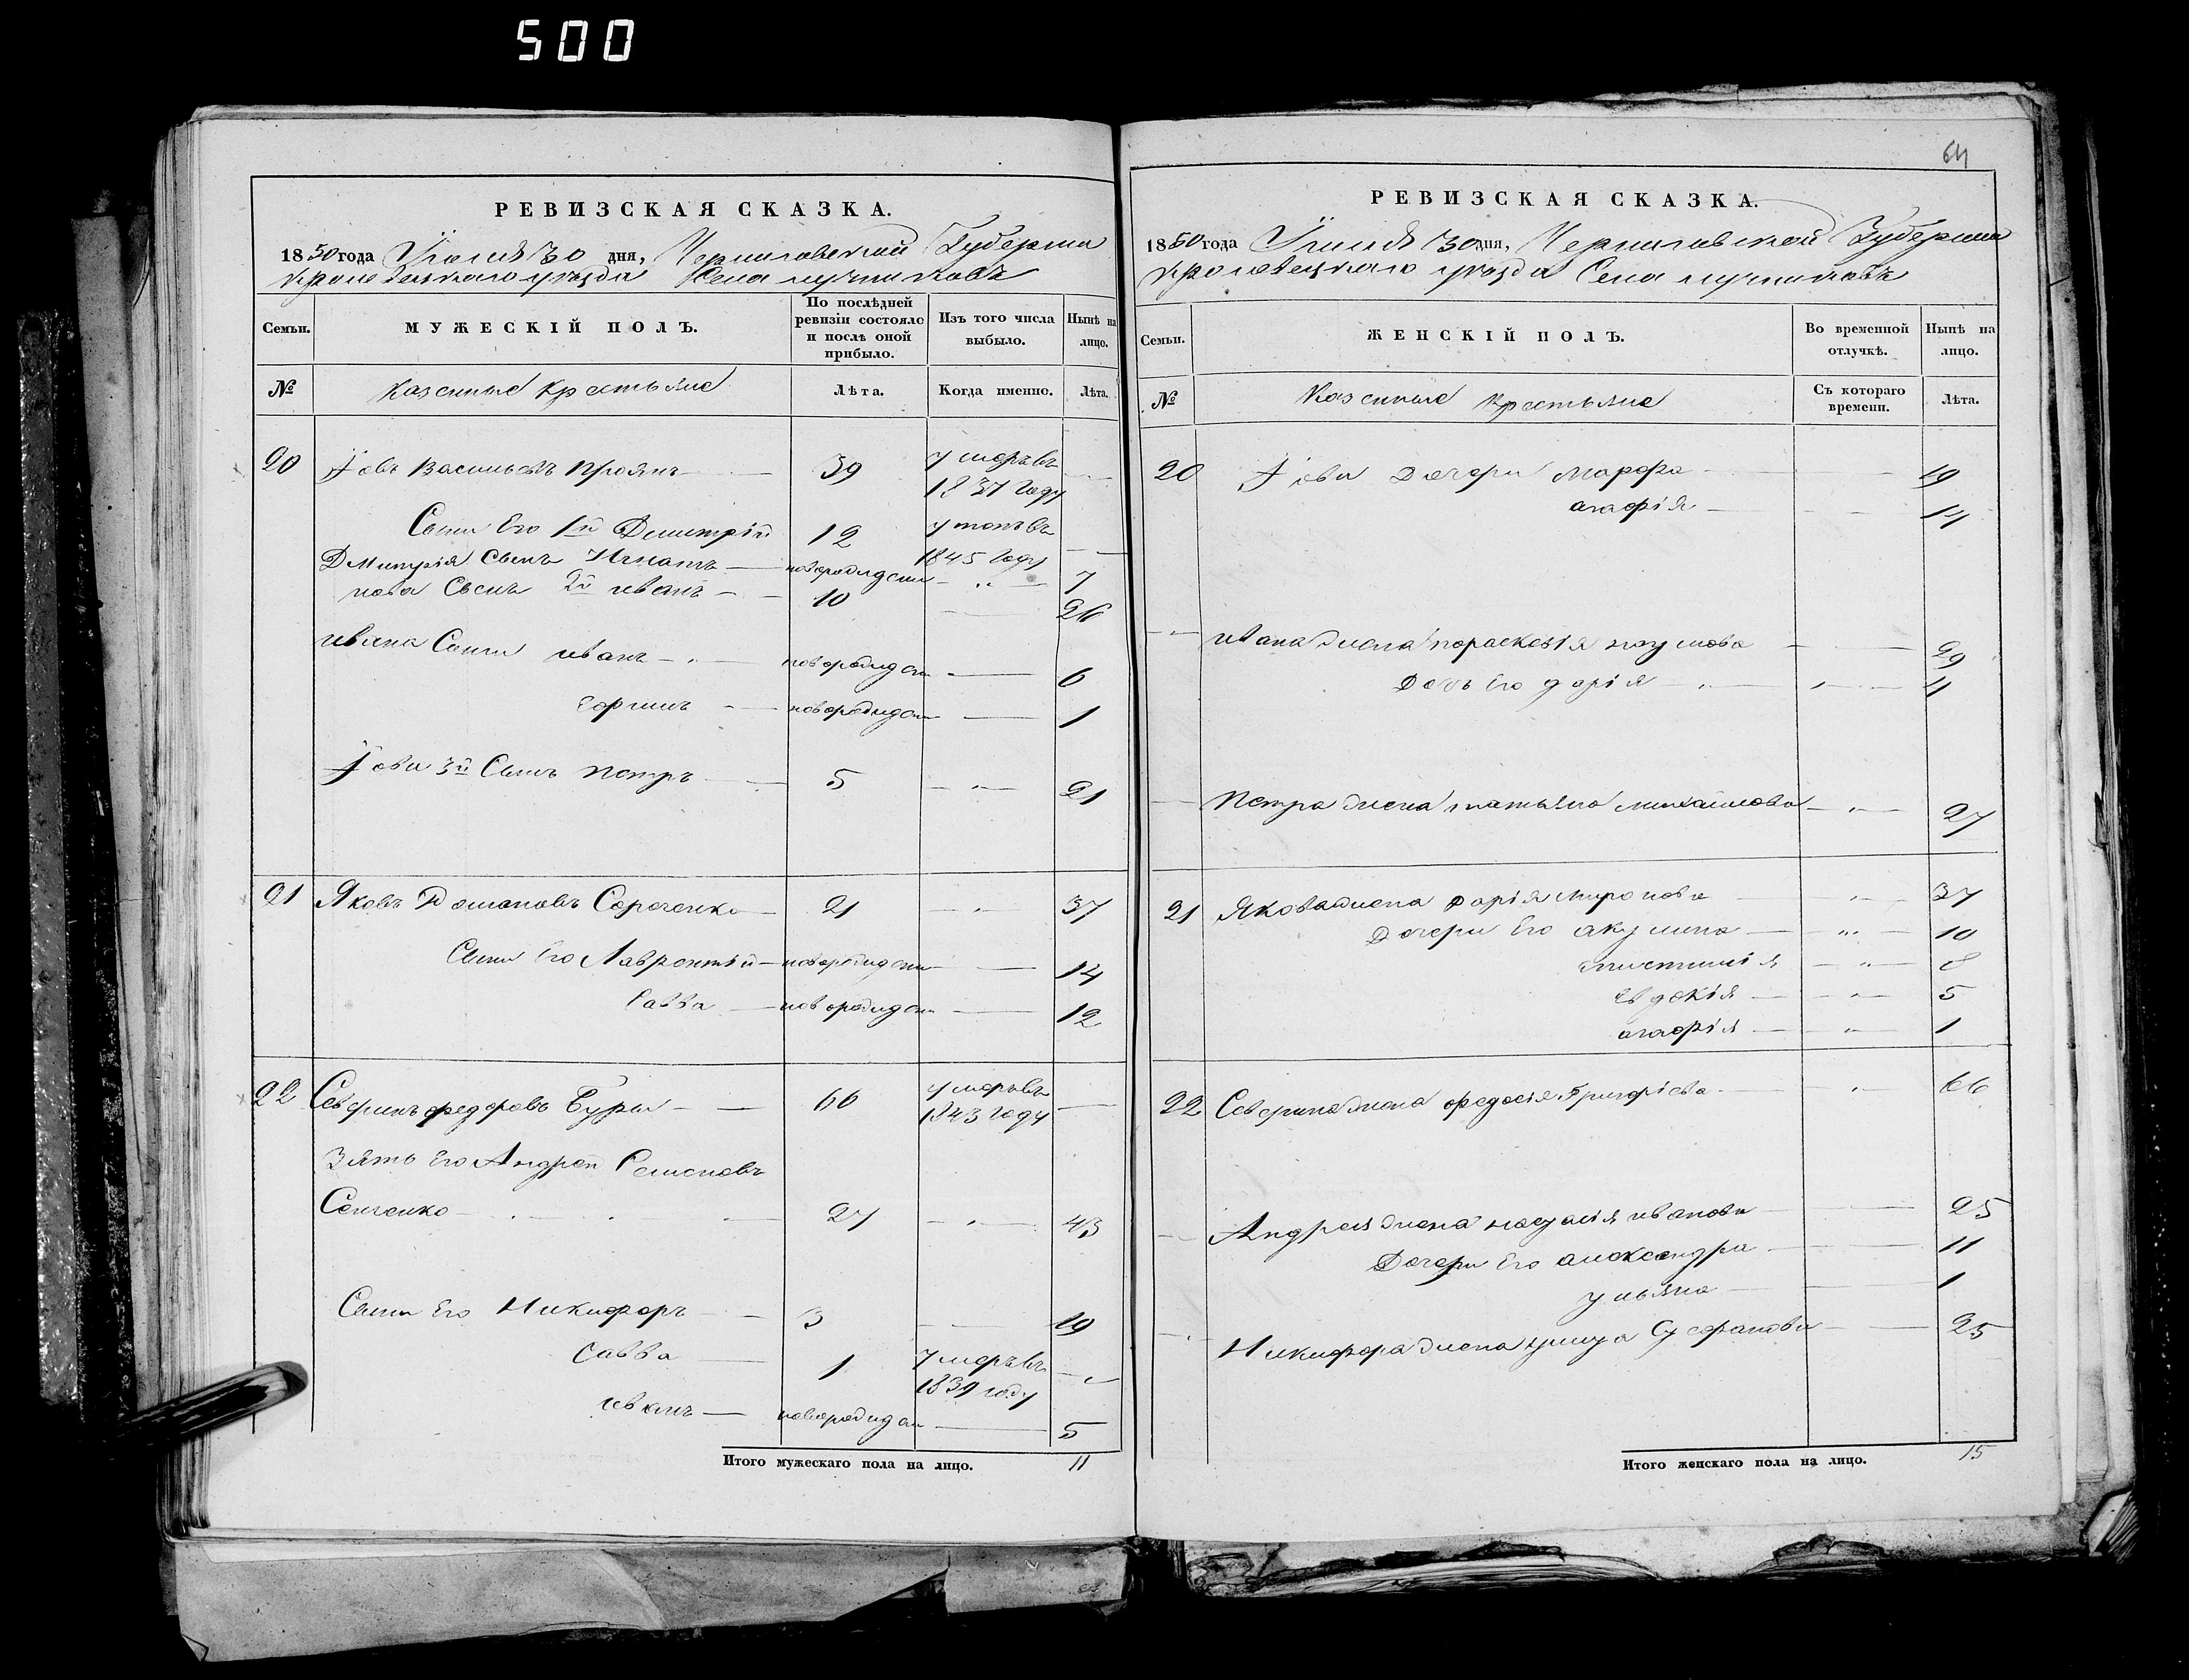 500
64
РЕВИЗСКАЯ СКАЗКА.
1850 года Июня 30 дня, Черниговской Губернии
Кролевецкаго уезда Села лучниковъ
Семьи.
МУЖЕСКІЙ ПОЛЪ.
По послѣдней ревизіи состояло и послѣ оной прибыло.
Изъ того числа выбыло.
Нынѣ на лицо.
№
Казенные крестьяне
Лѣта.
Когда именно.
Лѣта.
20 Іовъ Васильевъ 39 умеръ въ 1837 году
Сыни Его 1й Дмитрій 12 1845 году
Дмитрія Сынъ Игнатъ новорожден 7
Іова Сынъ 2й иванъ 10 26
ивана Сыни иванъ новорожден 6
ефимъ новорожден 1
Іова 3й Сынъ петръ 5 21
21 Яковъ Сороченко 21 37
Сыни Его Лаврентій новорожден 14
Савва новорожден 12
22 Северинъ федоровъ Бурый 60 умеръ въ 1843 году
Зять Его Андрей Семеновъ
Сенченко 27 43
Сыни Его Никифоръ 3 19
Савва 1 умеръ въ 1839 году
иванъ новорожден 5
Итого мужескаго пола на лицо. 11
РЕВИЗСКАЯ СКАЗКА.
1850 года Июня 30 дня, Черниговской Губернии
Кролевецкаго уезда Села лучниковъ
Семьи.
ЖЕНСКІЙ ПОЛЪ.
Во временной отлучкѣ.
Нынѣ на лицо.
№
Казенные крестьяне
Съ котораго времени.
Лѣта.
20 Іова Дочери Марфа 19
агафія 14
ивана жена параскевія наумова 29
Дочь Его дарія 4
Петра жена татьяна михаилова 27
21 Якова жена дарія миронова 37
Дочери Его акулина 10
8
евдокія 5
агафія 1
22 Северина жена федосія Григоріева 66
Андрея жена иванова 25
Дочери Его александра 11
ульяна 1
Никифора жена 25
Итого женскаго пола на лицо. 15